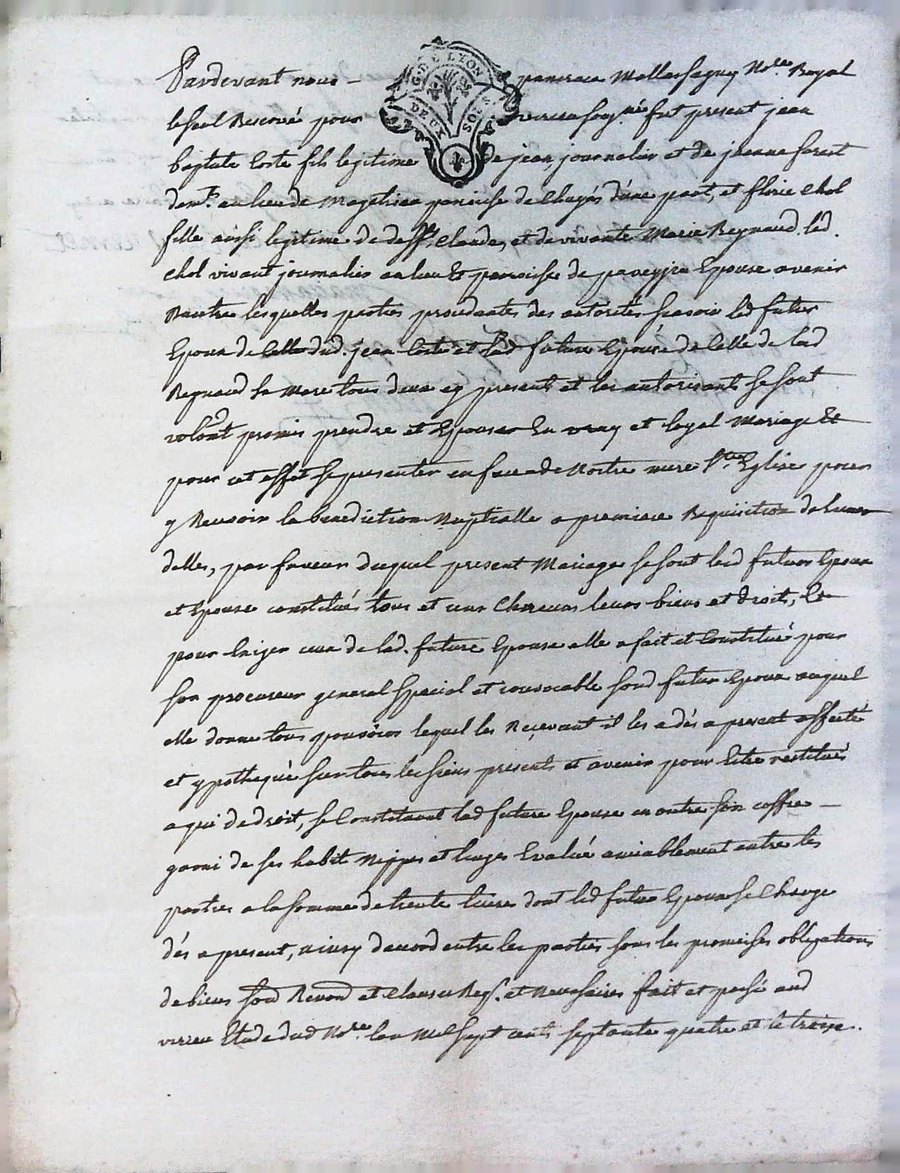 Pardevant nous – G. DE LYON pancrace Mallassagny No.re Royal
DEUX SOLS
le seul Reservé pour virieu soug.né fut present jean
baptiste Coste fils legitime de jean, journalier et de jeanne forest
dem.t au lieu de paroisse de Chagés d'une part, et florie Chol
fille aussi legitime de deff.t Claude, et de vivante Marie Reynaud. led.
Chol vivant journalier au lieu et paroisse de paveyzin Epouse avenir
D'autre lesquelles parties procedantes des autorités scavoir led futur
Epoux de Celle dud. jean Coste et lad future Epouse de Celle de lad
Reynaud sa Mere tous deux cy presents et les autorisants se sont
volont.t promis prendre et Epouser En vray et loyal Mariage Et
pour cet effet se presenter en face de Nostre mere S.te Eglise pour
y Recevoir la benediction Nuptialle a premiere Requisition de l'un
delles, par faveur duquel present Mariage se sont lesd futurs Epoux
et Epouse constitués tous et un Chacuns leurs biens et droits, Et
pour Exiger ceux de lad. future Epouse elle a fait et Constitué pour
son procureur general special et irrevocable sond futur Epoux auquel
elle donne tous pouvoirs lequel les Reçevant il les a dès a present affecté
et ypothequé sur tous les siens presents et avenir pour Estre restitués
a qui de droit, se Constituant lad future Epouse en outre son coffre –
garni de ses habit Nippes et linges Evalué amiablement entre les
parties a la somme de trente livres dont led futur Epoux se Charge
dès a present, Ainsy d'acord entre les parties sous les promesses obligations
de biens soud Renond et Clauses Reqs. et Necessaires fait et passé aud
virieu Etude dud No.re l'an Mil sept cents septante quatre et le treize.